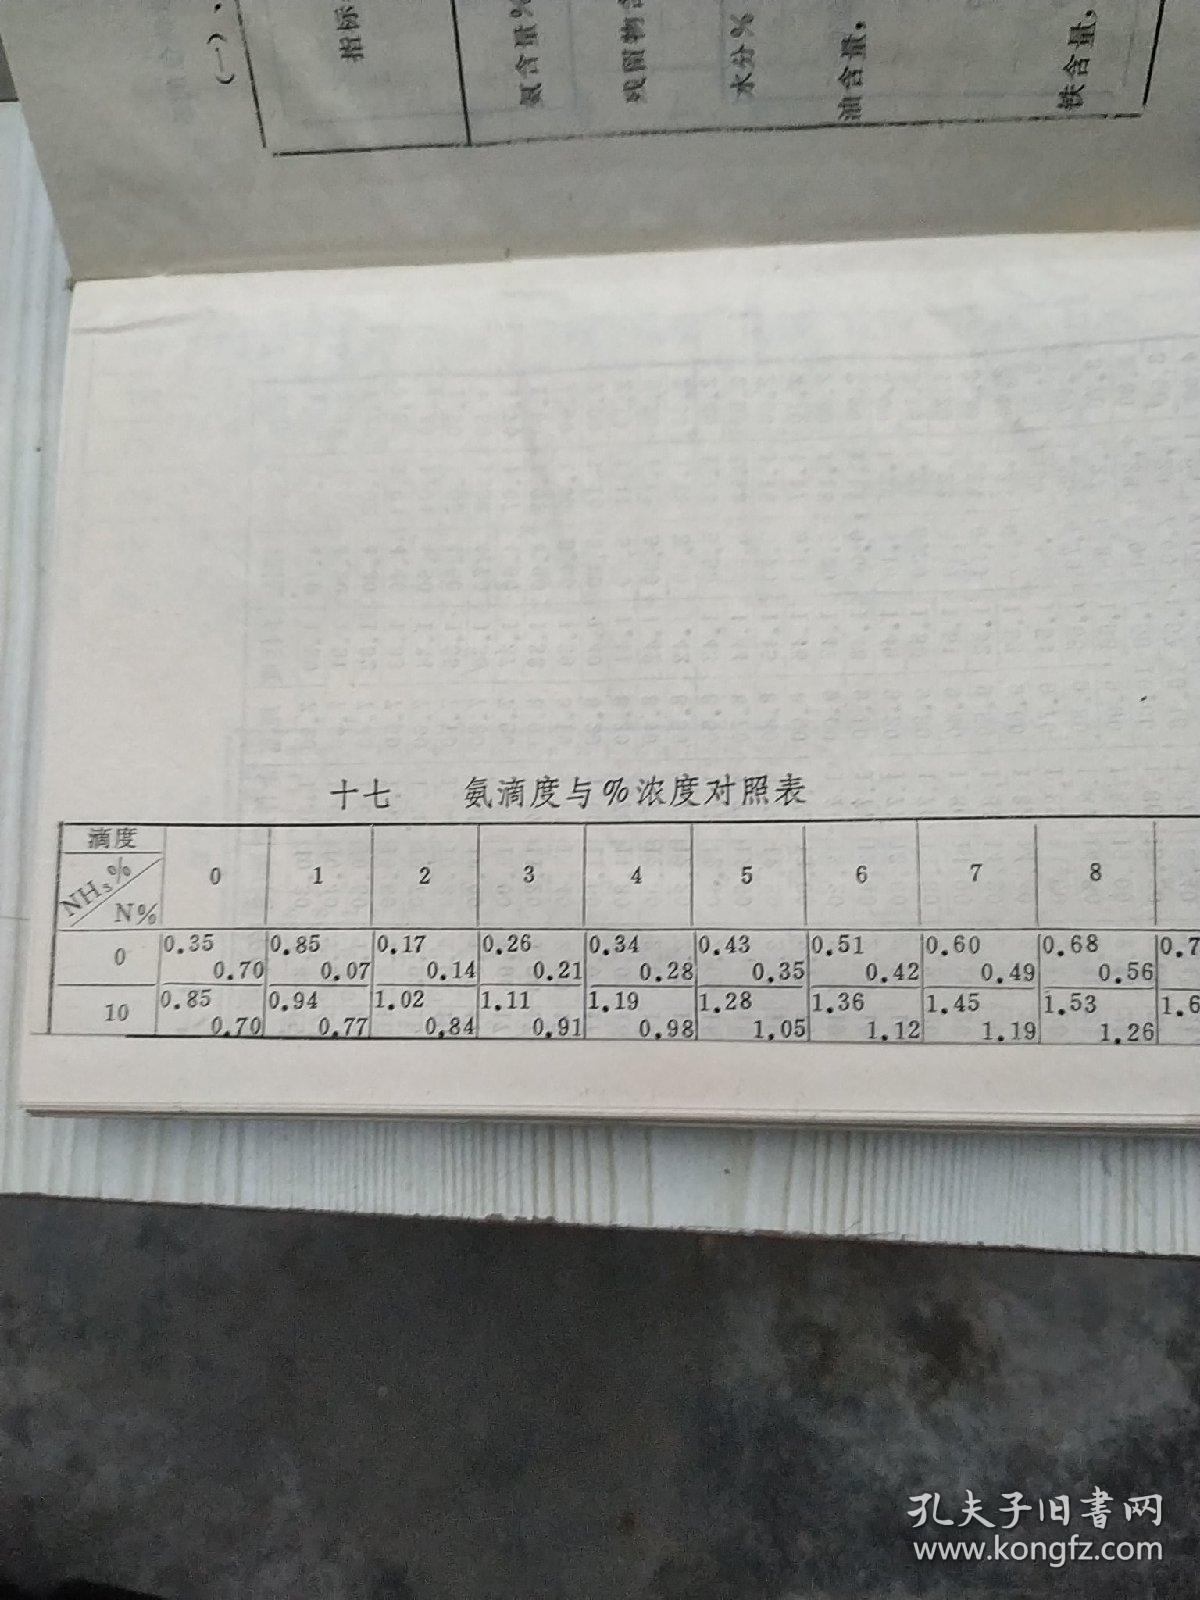 (一)、
指标
氨含量%
残留物含
水分%
油含量,
铁含量,
十七 氨滴度与%浓度对照表
滴度 NH₃% N% 0 1 2 3 4 5 6 7 8
0 0.35 0.85 0.17 0.26 0.34 0.43 0.51 0.60 0.68 0.7
0.70 0.07 0.14 0.21 0.28 0.35 0.42 0.49 0.56
10 0.85 0.94 1.02 1.11 1.19 1.28 1.36 1.45 1.53 1.6
0.70 0.77 0.84 0.91 0.98 1.05 1.12 1.19 1.26
孔夫子旧书网
www.kongfz.com